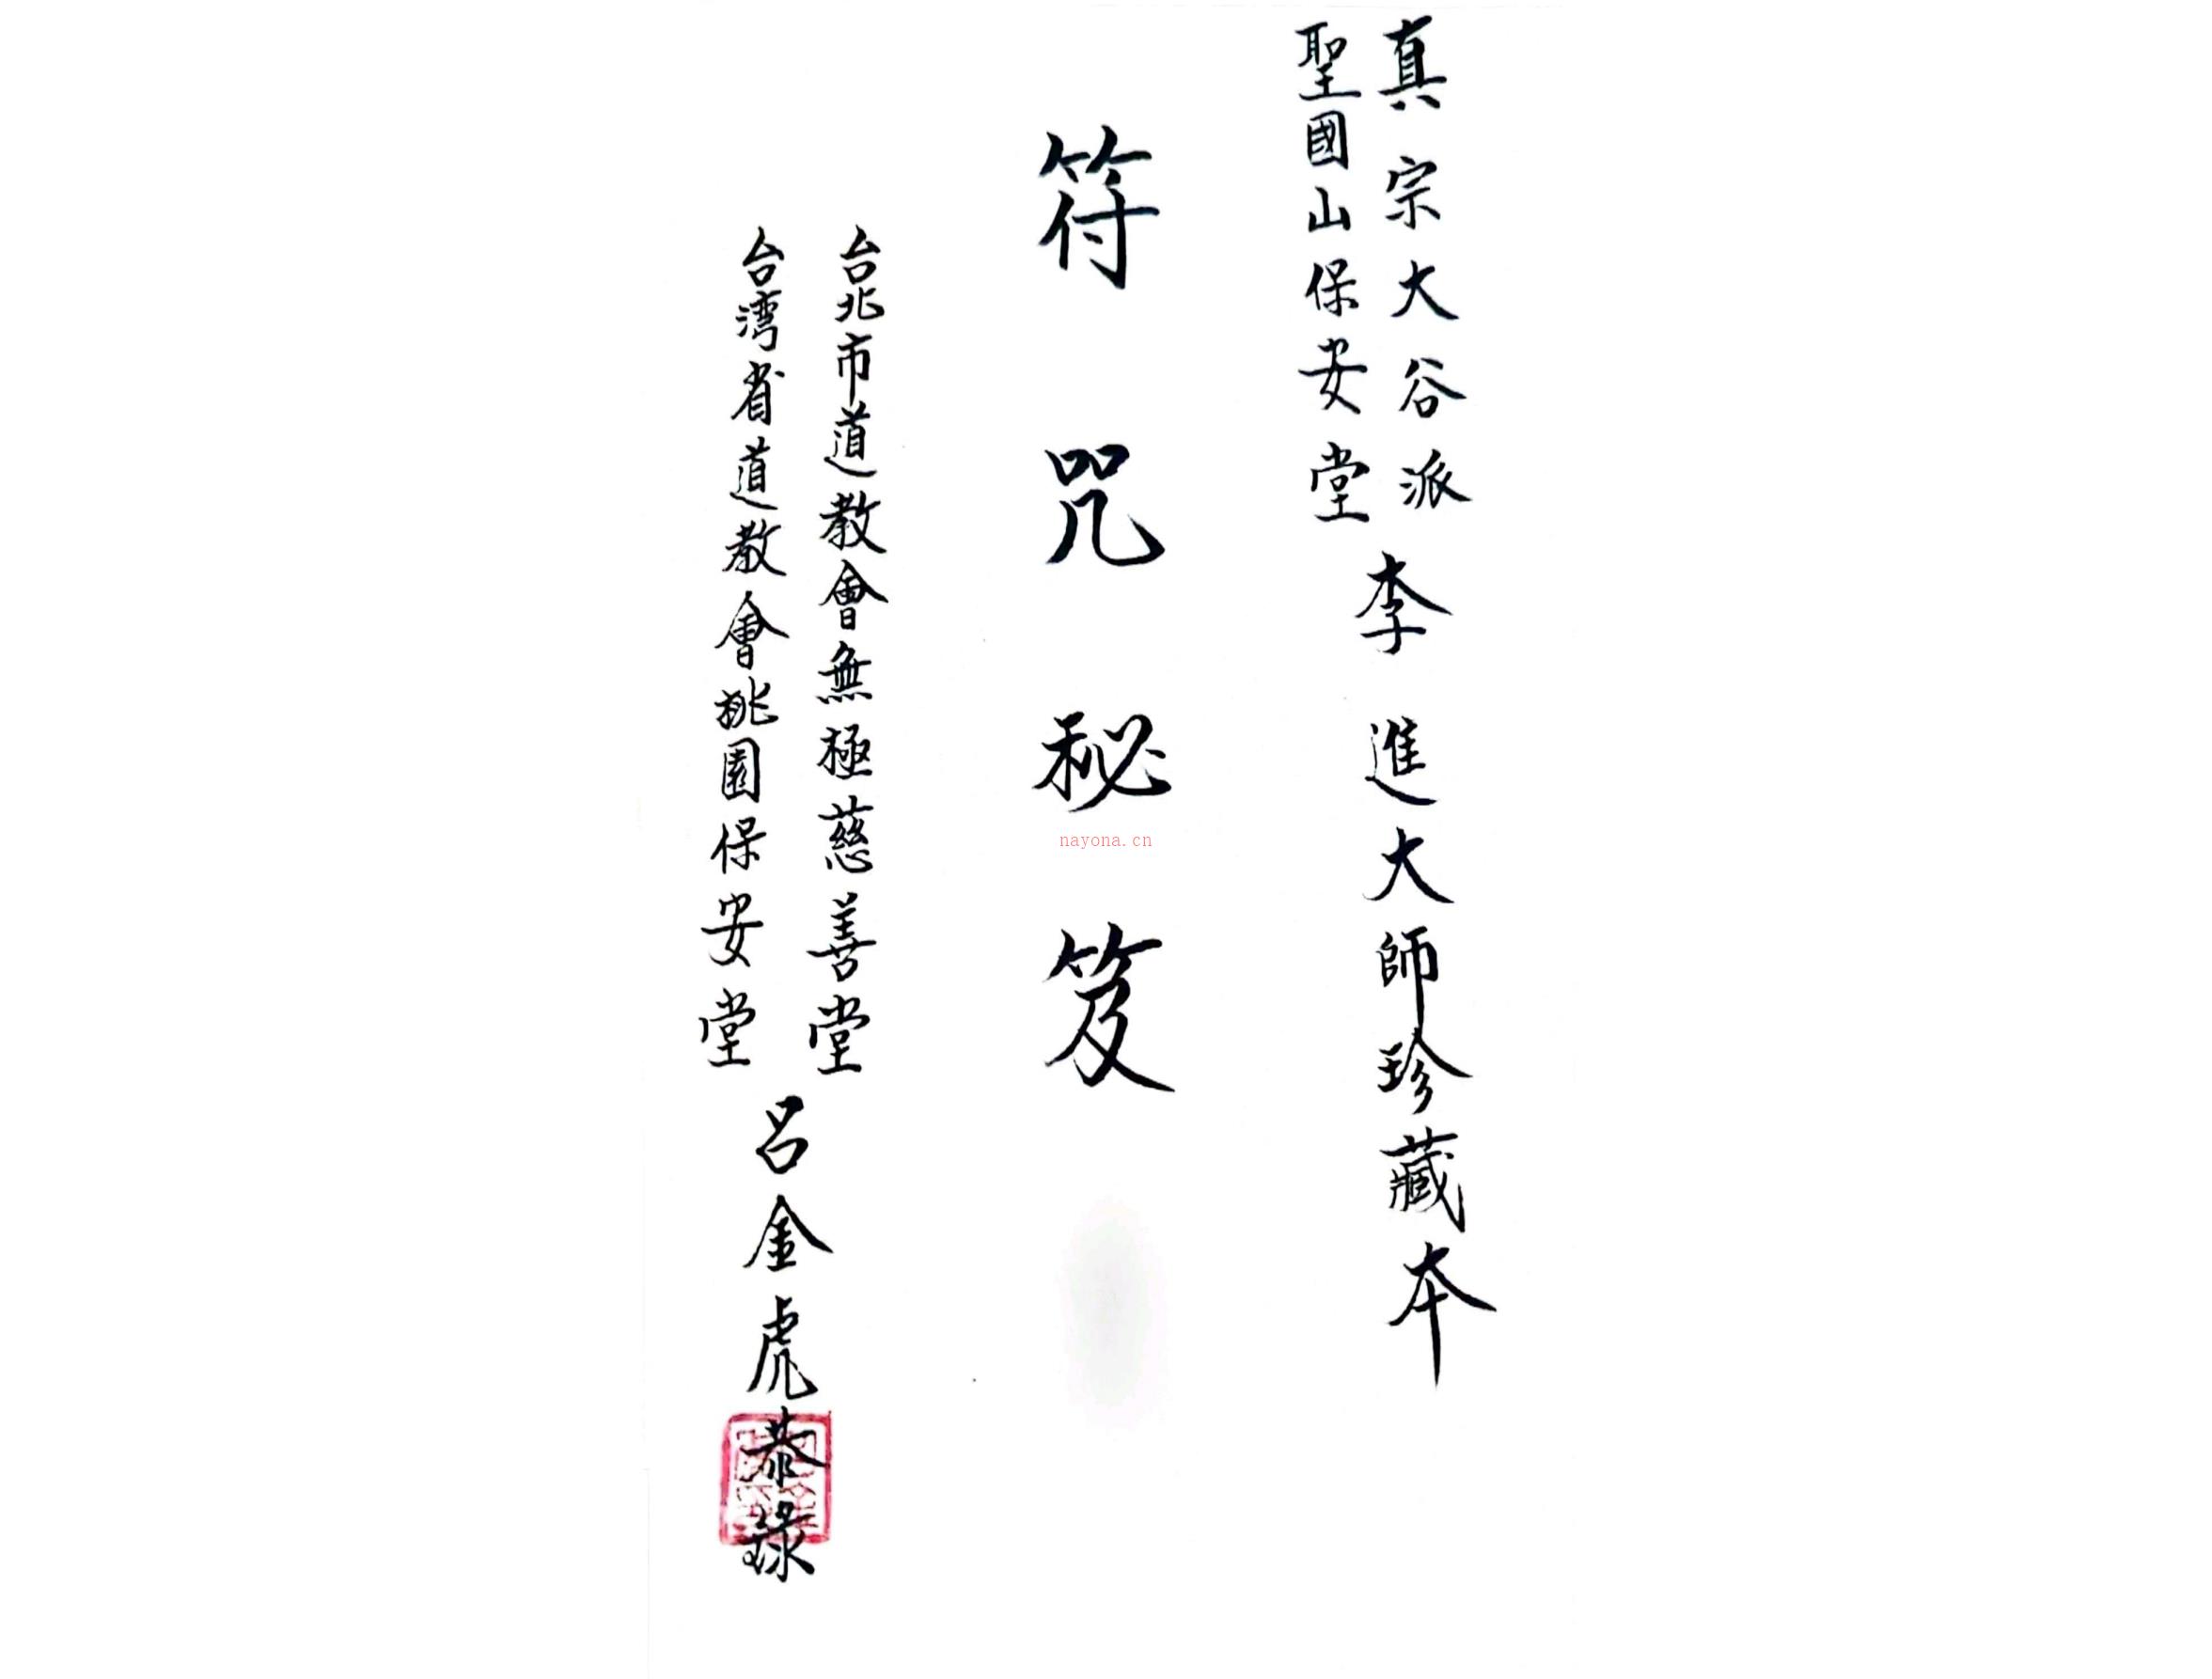 真宗大谷派
聖國山保安堂
李進大師珍藏本
符咒秘笈
台北市道教會無極慈善堂
台湾省道教會桃園保安堂
呂金虎恭錄
nayona.cn